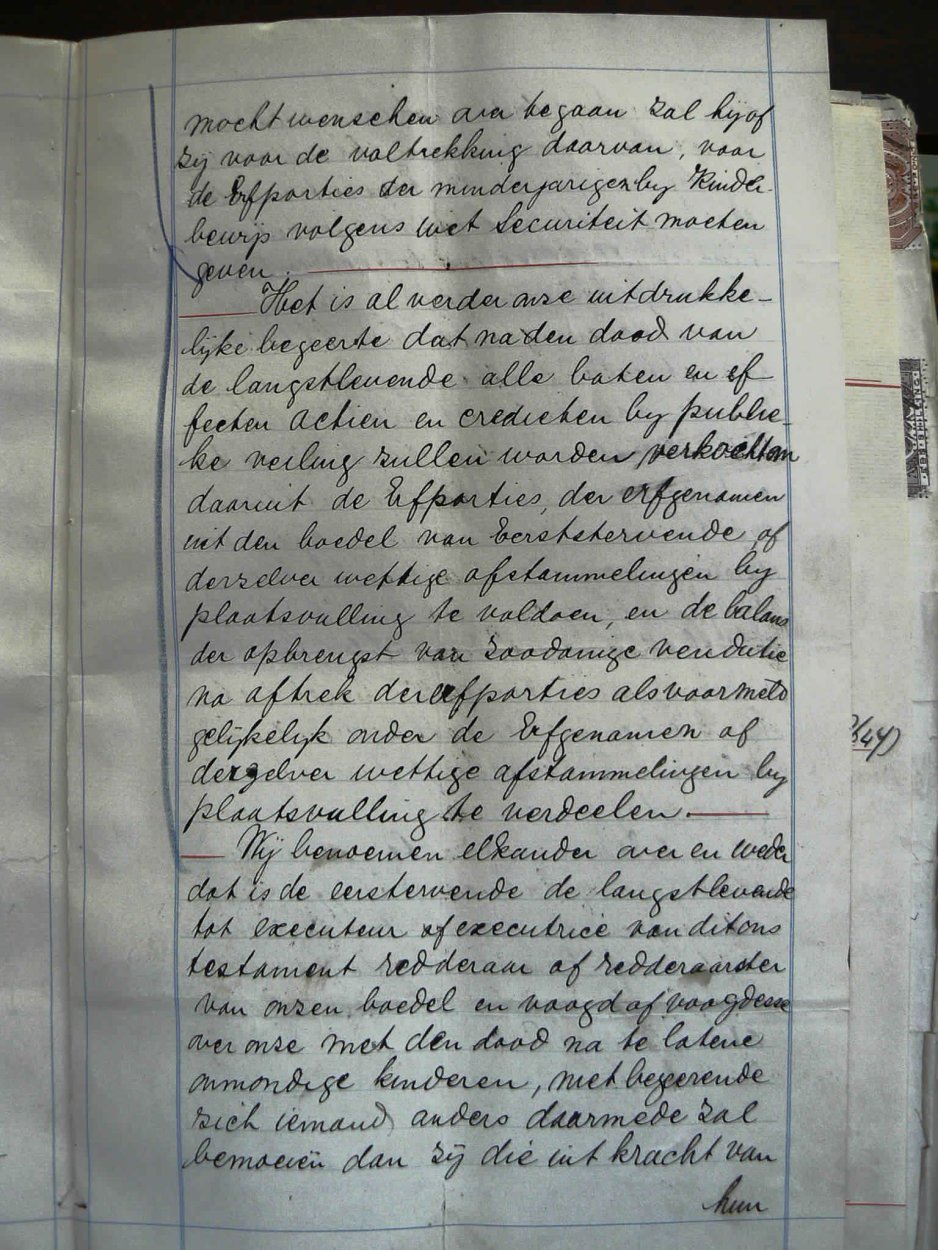 mocht wenschen over begaan zal hij of
zij voor de voltrekking daarvan, voor
de Erfporties der minderjarigen by Kinder-
bewijs volgens wet Securiteit moeten
geven.
Het is al verder onze uitdrukke-
lijke begeerte dat na den dood van
de langstlevende alle baten en ef
fecten actien en credieten by publie-
ke veiling zullen worden verkocht om
daaruit de Erfporties, der erfgenamen
uit den boedel van Eerststervende of
derzelver wettige afstammelingen by
plaatsvulling te voldoen, en de balans
der opbrengst van zoodanige vendutie
na aftrek der erfporties als voormeld
gelijkelijk onder de Erfgenamen of
derzelver wettige afstammelingen by
plaatsvulling te verdeelen.
Wij benoemen elkander over en weder
dat is de eerstervende de langstlevende
tot executeur of executrice van dit ons
testament redderaar of redderaarster
van onzen boedel en voogd of voogdesse
over onze met den dood na te latene
onmondige kinderen, niet begeerende
zich iemand anders daarmede zal
bemoeien dan zij die uit kracht van
hun